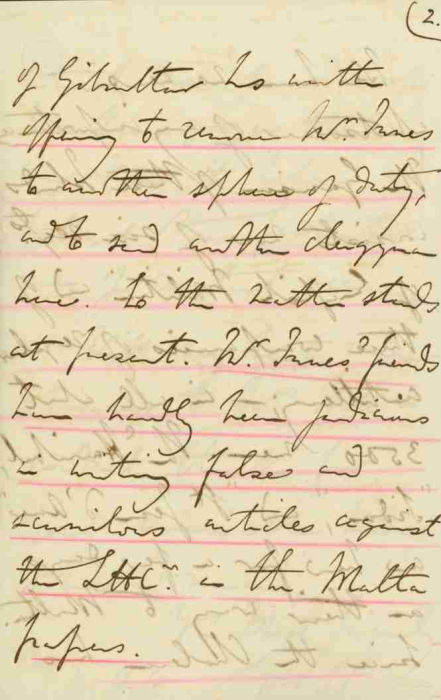 (2.
of Gibraltar has written
offering to remove Mr. Innes
to another sphere of duty,
and to send another clergyman
here. So the matter stands
at present. Mr. Innes' friends
have hardly been judicious
in writing false and
scurrilous articles against
the LHCr. in the Malta
papers.